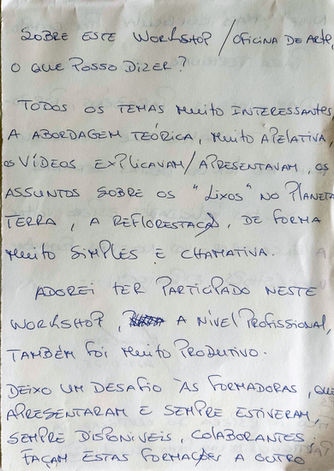 SOBRE ESTE WORKSHOP / OFICINA DE ARTE,
O QUE POSSO DIZER?
TODOS OS TEMAS MUITO INTERESSANTES
A ABORDAGEM TEÓRICA, MUITO APELATIVA,
OS VÍDEOS EXPLICAVAM / APRESENTAVAM, OS
ASSUNTOS SOBRE OS "LIXOS" NO PLANETA
TERRA, A REFLORESTAÇÃO, DE FORMA
MUITO SIMPLES E CHAMATIVA.
ADOREI TER PARTICIPADO NESTE
WORKSHOP, A NÍVEL PROFISSIONAL,
TAMBÉM FOI MUITO PRODUTIVO.
DEIXO UM DESAFIO ÀS FORMADORAS, QUE
APRESENTARAM E SEMPRE ESTIVERAM,
SEMPRE DISPONÍVEIS, COLABORANTES,
FAÇAM ESTAS FORMAÇÕES A OUTRO